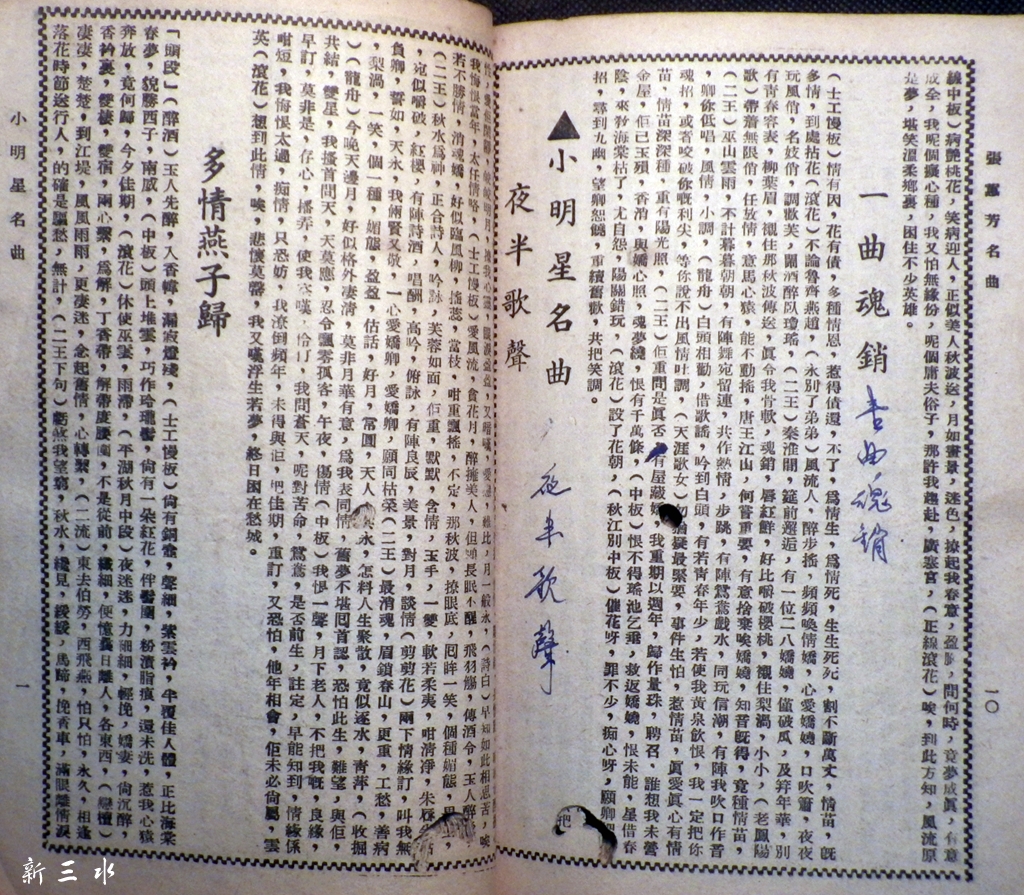 張蕙芳名曲
一〇
線中板）病艷桃花，笑病迎人，正似美人秋波送，月如畫景，迷色，撩起我春意，盈
問何時，竟夢成眞，有意
成全，我呢個癡心種，我又怕無緣份，呢個庸夫俗子，那許我趨赴，廣寒宮，（正線滾花）唉，到此方知，風流原
是夢，堪笑溫柔鄉裏，困住不少英雄。
一曲魂銷
壹曲魂銷
（士工慢板）情有因，花有債，多種情恩，惹得債還，不了，爲情生，爲情死，生生死死，割不斷萬丈，情苗，旣
多情，到處拈花（滾花）不論魯齊燕趙，（永別了弟弟）風流人，醉步搖，頻頻喚倩嬌，心愛嬌嬈，口吹簫，夜夜
玩風俏，名妓俏，調歡笑，關酒醉臥瓊瑤，（二王）秦淮間，筵前邂逅，有一位二八嬌嬈，僅破瓜，及笄年華，別
有青春容表，柳葉眉，襯住那秋波傳送，眞令我肯歌，魂銷，唇紅鮮，好比嚼破櫻桃，襯住梨渦，小小，（老鳳陽
歌）帶着無限俏，任放情，意馬心猿，能不動搖，唐王江山，何嘗重要，有意捨棄唉嬌嬈，知音既得，竟種情苗，
（二王）巫山雲雨，不計暮暮朝朝，有陣舞宛留連，共作熱情，步跳，有陣鴛鴦戲水，同玩信潮，有陣我吹口作音
，卿你低唱，風情，小調，（龍舟）白頭相勸，借歌謠，吟到白頭，有若靑春年少，若使我黃泉飲恨，我一定把
魂招，或者咬破你嘅利尖，等你說不出風情吐調，（天涯歌女）
猶疑最緊要，事件生怕，惹情苗，眞愛眞心有情
苗，情苗深深種，重有陽光照，（二王）佢重問是眞否，
有屋藏嬌，我重期以週年，歸作量珠，聘召，誰想我未營
金屋，佢已玉殞，香消，與嬌心照，魂夢繞，恨有千萬條，（中板）恨不得瑤池乞乘，救返嬌嬈，恨未能，星借春
陰，來救海棠枯了，尤自怨，陽關錯玩，（滾花）設了花朝，（秋江別中板）催花呀，罪不少，痴心呀，願卿
把
招，尋到九幽，望卿恕饒，重續舊歡，共把笑調。
▲小明星名曲
夜半歌聲
夜半歌聲
若不勝情，消魂嬌，好似臨風柳，搖蕊，當枝，咁重飄搖，不定，那秋波，撩眼底，回眸一笑，個種媚態，
（二王）秋水爲神，正合詩人，吟詠，芙蓉如面，佢重，默默，含情，玉手，一雙，軟若柔荑，咁清淨，朱唇
，宛似嚼破，紅櫻，有陣詩酒，唱酬，高吟，俯詠，有陣良辰，美景，對月，談情（剪剪花）兩下情緣訂，叫我無
負卿，誓如，天永，我倆賢又敬，一心愛嬌卿，愛嬌卿，願同枯榮（二王）最消魂，眉鎖春山，更重，工愁，善病
，梨渦，一笑，個一種，媚態，盈盈，估話，好月，常圓，天人
永，怎料人生聚散，竟似逐水，靑萍，（收掘
）（龍舟）今晚天邊月，好似格外凄清，莫非月華有意，爲我表同情，舊夢不堪回首認，恐怕此生，難望，與佢
共結，雙星，我搔首問天，天莫應，忍令飄零孤客，午夜，傷情（中板）我恨一聲，月下老人，不把我嘅，良緣，
早訂，莫非是，仔心，播弄，使我
嘆，恰汀，我問蒼天，呢對苦命，鴛鴦，是否前生，註定，早能知到，情緣係
咁短，我悔恨太過，痴情，只恐妨，我潦倒頻年，未得與佢，把佳期，重訂，又恐怕，他年相會，佢未必尙屬，雲
英（滾花）想到此情，唉，悲懷莫罄，我又嘆浮生若夢，終日困在愁城。
多情燕子歸
「頭段」（醉酒）玉人先醉，入香幃，漏寂燈殘，（士工慢板）倘有銅龕，聲細，紫雲衿，半覆佳人體，正比海棠
春夢，貌勝西子，南威，（中板）頭上堆雲，巧作玲瓏髻，倘有一朶紅花，伴髻圍，粉漬脂痕，還未洗，惹我心猿
奔放，竟何歸，今夕佳期，（滾花）休使巫雲，雨滯，（平湖秋月中段）夜迷迷，力細細，輕挽，嬌妻，倘沉醉，
香衿裏，雙棲，雙宿，兩心繫，爲解，丁香帶，解帶度腰圍，不是從前，纖細，便憶舊日離人，各東西，（戀檀）
凄凄，楚楚，到江堤，風風雨雨，更凄迷，念起舊情，心轉繫，（二流）東去伯勞，西飛燕，怕只怕，永久，相違
落花時節送行人，的確是驅愁，無計，（二王下句）虧煞我望窮，秋水，纔見，緩緩，馬蹄，挽香車，滿眼離情淚
小明星名曲
一
新三水